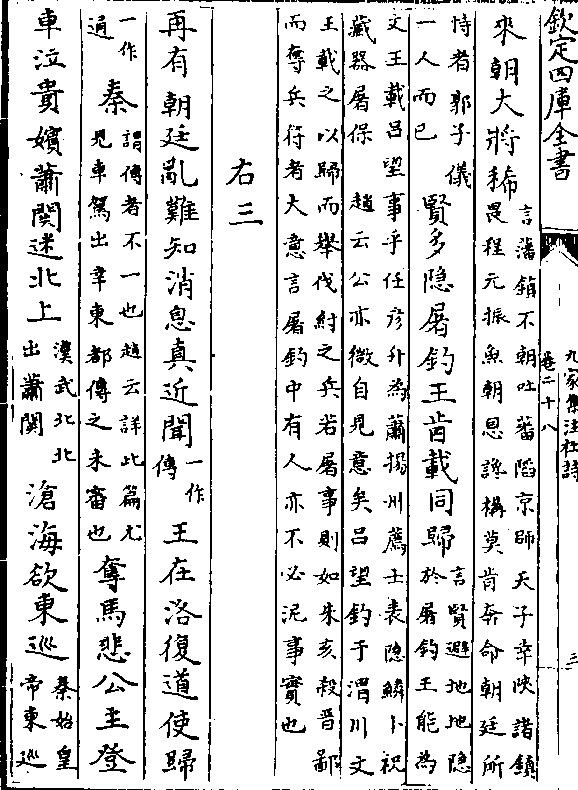 欽定四庫全書
九家集注杜詩
卷二十八
三
來朝大將稀言藩鎮不朝吐蕃陷京師天子幸陜諸鎮
畏程元振魚朝恩讒構莫肯奔命朝廷所
恃者郭子儀
一人而已賢多隱屠釣王肯載同歸言賢避地地隱
於屠釣王能為
文王載吕望事乎任彥升為蕭揚州薦士表隱鱗卜祝
藏器屠保 趙云公亦微自見意矣吕望釣于渭川文
王載之以歸而舉伐紂之兵若屠事則如朱亥殺晉鄙
而奪兵符者大意言屠釣中有人亦不必泥事實也
右三
再有朝廷亂難知消息真近聞一作
傳王在洛復道使歸
一作
通秦謂傳者不一也趙云詳此篇尤
見車駕出幸東都傳之未審也奪馬悲公主登
車泣貴嬪蕭關迷北上漢武北北
出蕭關滄海欲東巡秦始皇
帝東巡